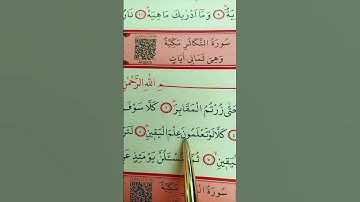 يَةٌ ﴿٩﴾ وَمَٓا اَدْرٰيكَ مَاهِيَهْ ﴿١٠﴾ نَارٌ
سُورَةُ التَّكَاثُرِ مَكِّيَّةٌ
وَهِيَ ثَمَانِي اٰيَاتٍ
مِ اللهِ الرَّحْمٰنِ
حَتّٰى زُرْتُمُ الْمَقَابِرَ ﴿٢﴾ كَلَّا سَوْفَ
كَلَّا لَوْ تَعْلَمُونَ عِلْمَ الْيَقِينِ ﴿٥﴾ لَتَرَ
لْيَقِينِ ﴿٧﴾ ثُمَّ لَتُسْـَٔلُنَّ يَوْمَئِذٍ عَنِ
سُورَةُ الْ مَكِّيَّةٌ